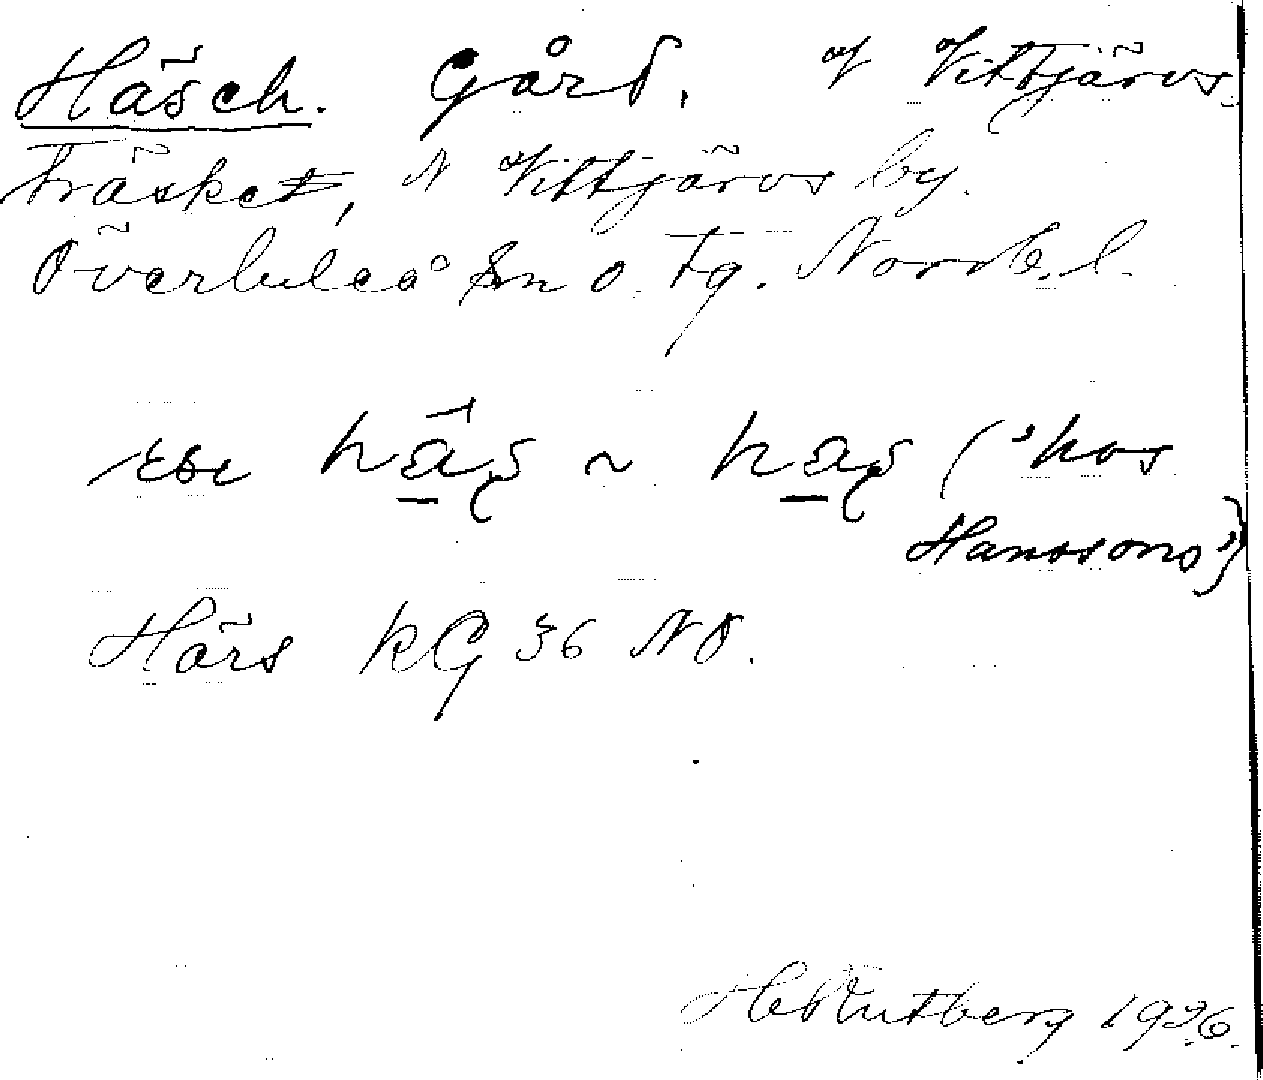 Häsch. Gård. V Vittjärvs
träsket, N Vittjärvs by.
Överluleå sn o. tg. Norrb. l.
hās̱ ~ has̱ ('hos
Hanssons')
Härs KG 36 NO.
1926.